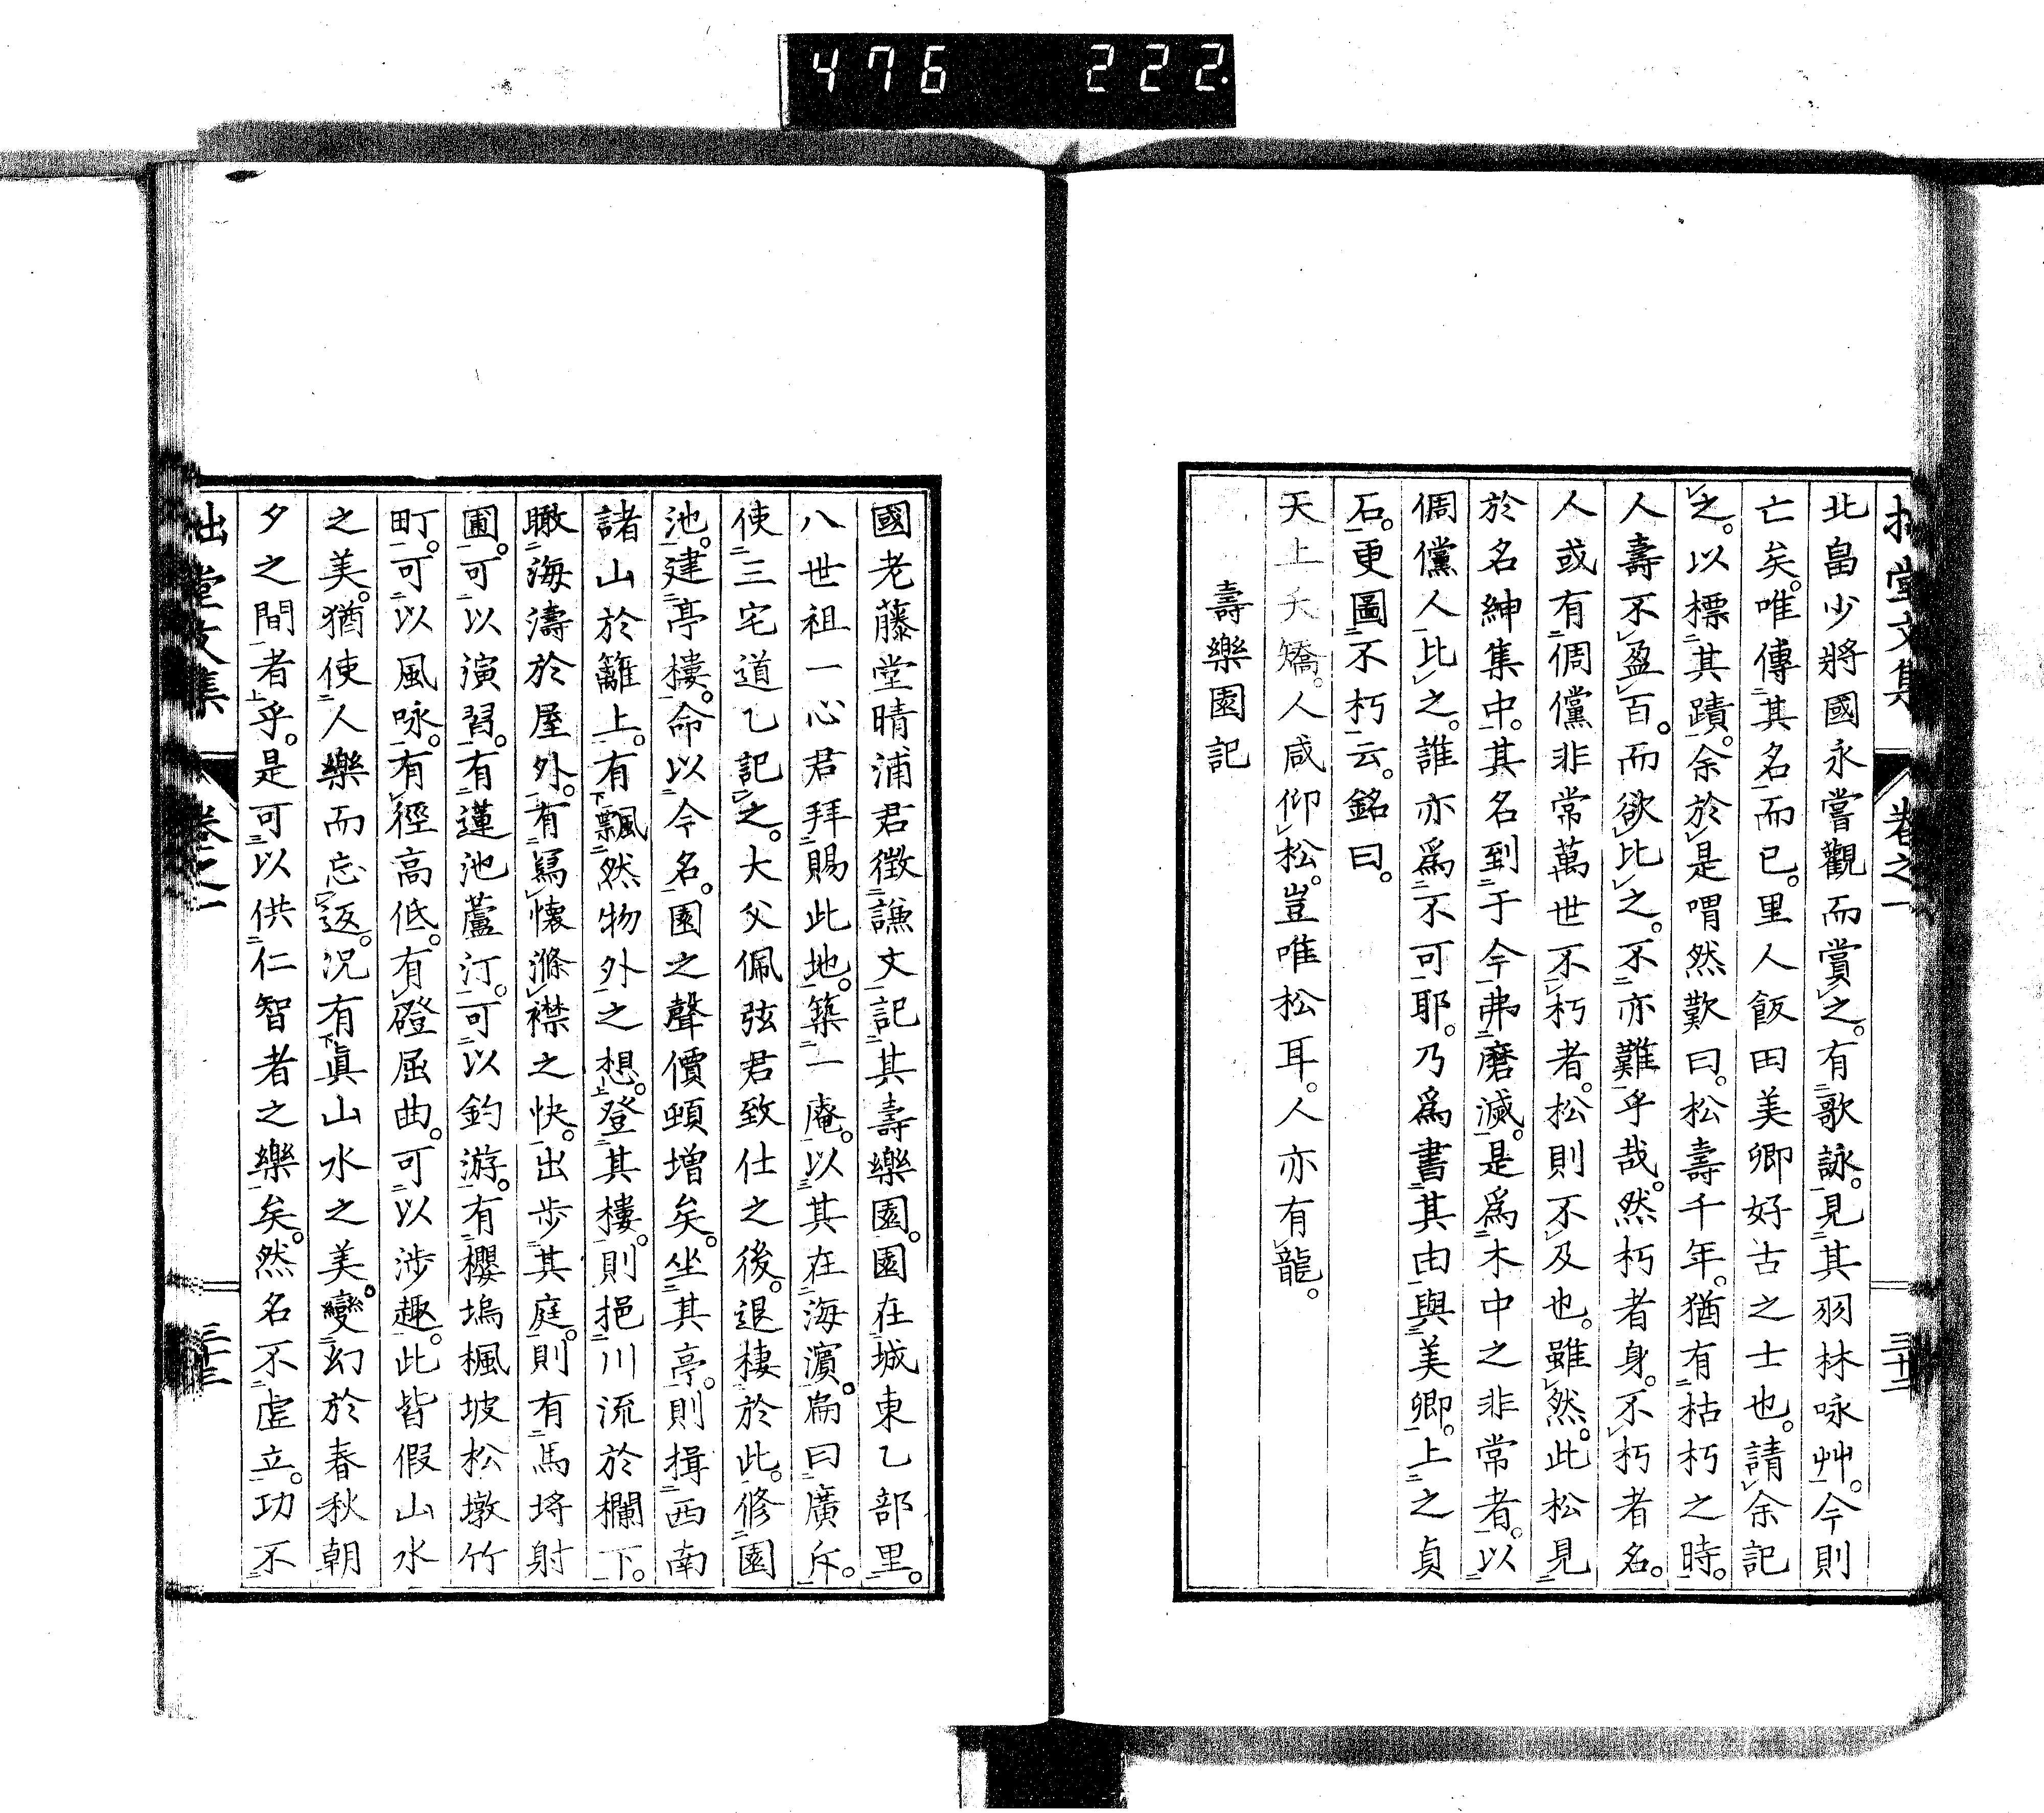 476 222
拙堂文集 卷之一 三十二
北畠少將國永嘗觀而賞之。有歌詠。見其羽林咏艸。今則
亡矣。唯傳其名而已。里人飯田美卿好古之士也。請余記
之。以標其蹟。余於是喟然歎曰。松壽千年。猶有枯朽之時。
人壽不盈百。而欲比之。不亦難乎哉。然朽者身。不朽者名。
人或有倜儻非常萬世不朽者。松則不及也。雖然。此松見
於名紳集中。其名到于今弗磨滅。是爲木中之非常者。以
倜儻人比之。誰亦爲不可耶。乃爲書其由與美卿。上之貞
石。更圖不朽云。銘曰。
天上夭矯。人咸仰松。豈唯松耳。人亦有龍。
壽樂園記
國老藤堂晴浦君徴謙文記其壽樂園。園在城東乙部里。
八世祖一心君拜賜此地。築一庵。以其在海濵。扁曰廣斥。
使三宅道乙記之。大父佩弦君致仕之後。退棲於此。修園
池。建亭樓。命以今名。園之聲價頓增矣。坐其亭。則揖西南
諸山於籬上。有飄然物外之想。登其樓。則挹川流於欄下。
瞰海濤於屋外。有寫懷滌襟之快。出步其庭。則有馬埒射
圃。可以演習。有蓮池蘆汀。可以釣游。有櫻塢楓坡松墩竹
町。可以風咏。有徑高低。有磴屈曲。可以涉趣。此皆假山水
之美。猶使人樂而忘返。況有眞山水之美。變幻於春秋朝
夕之間者乎。是可以供仁智者之樂矣。然名不虛立。功不
拙堂文集 卷之一 三十三